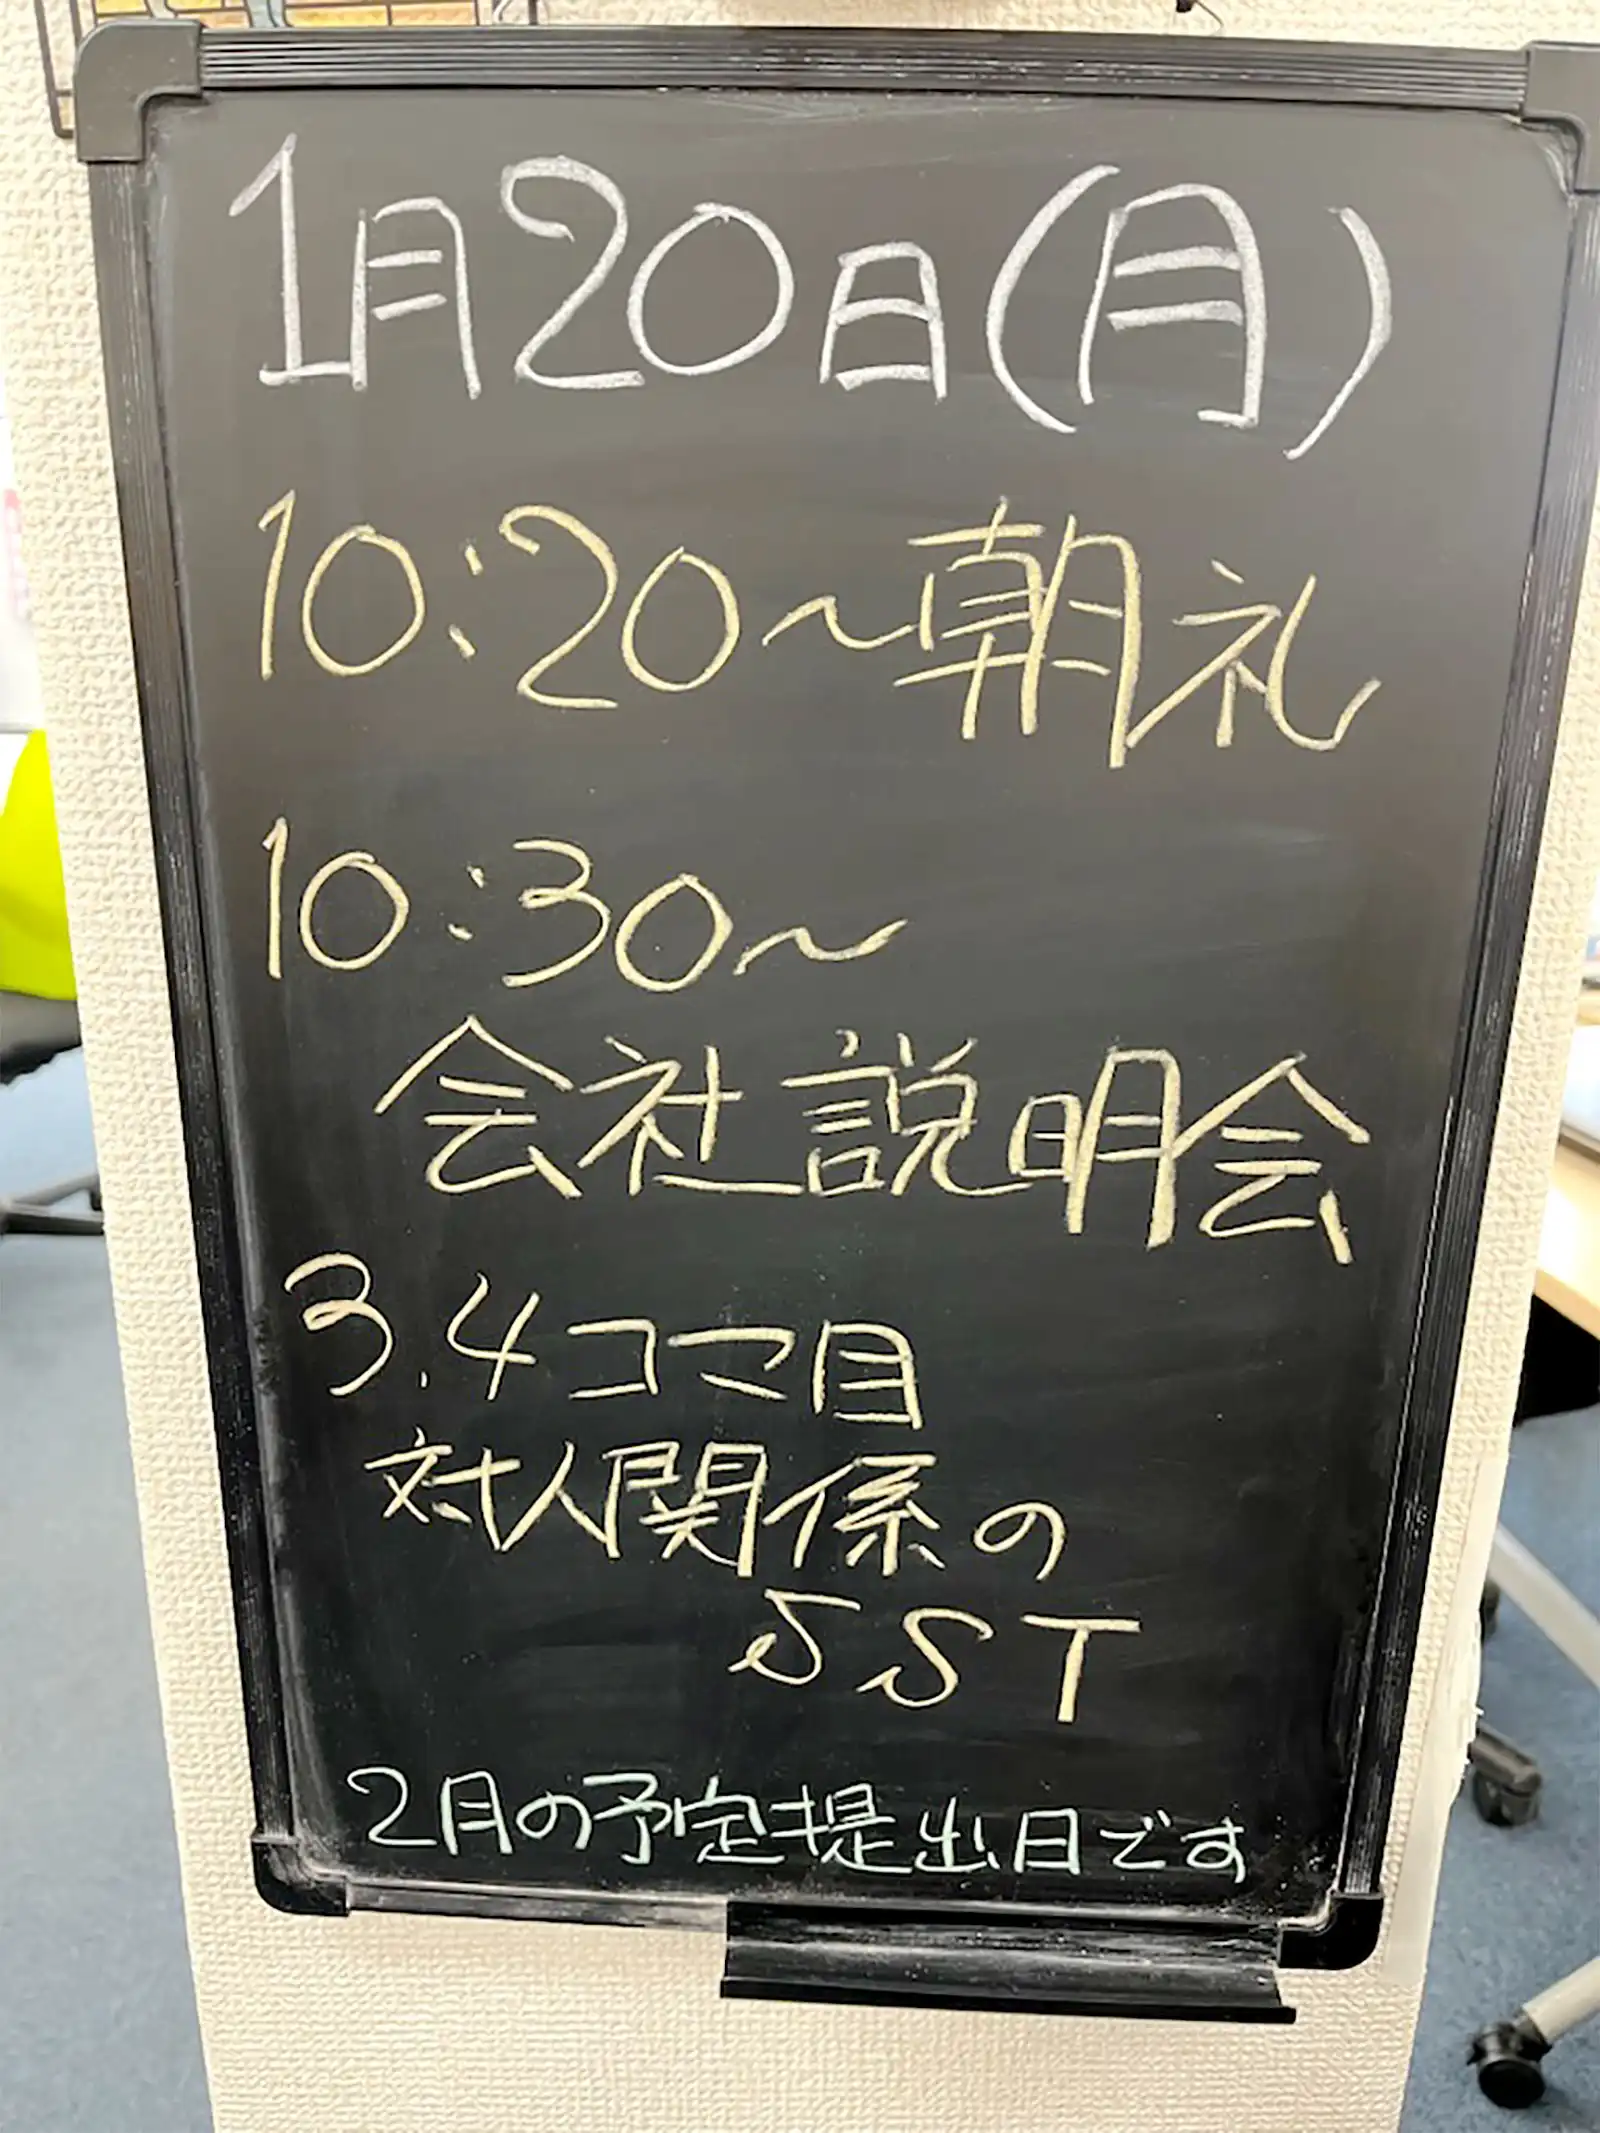 1月20日(月)
10:20～朝礼
10:30～
会社説明会
3.4コマ目
対人関係の
SST
2月の予定提出日です